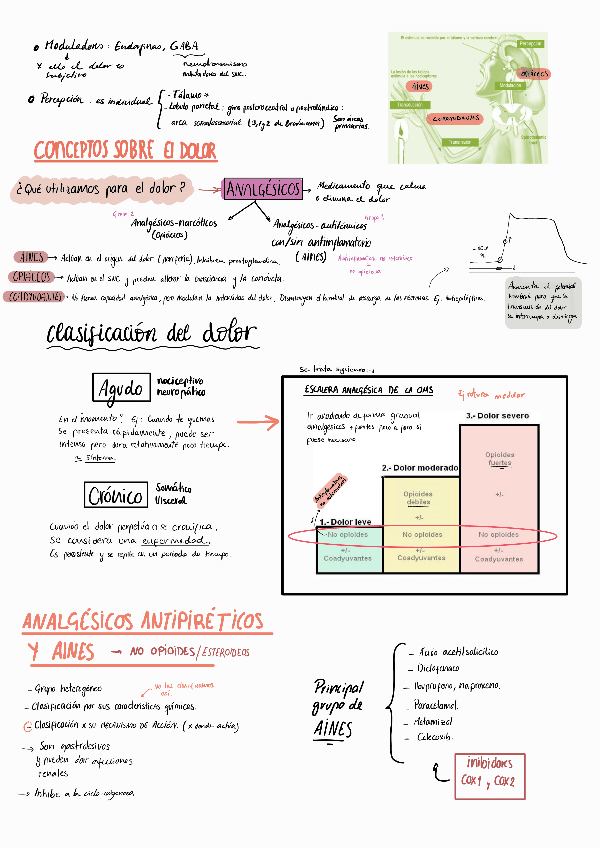 Moduladores: Endorfinas, GABA
x ello el dolor es subjetivo
neurotransmisores
inhibidores del SNC.
Percepción: es individual
- Tálamo *
- Lóbulo parietal: giro postcentral o postrolándico:
área somatosensorial (3,1 y 2 de Brodmann)
Son áreas primarias.
El estímulo es modulado por el tálamo y la corteza cerebral
Percepción
OPIÁCEOS
Modulación
La lesión de los tejidos estimula a los nociceptores
AINES
Transducción
COADYUVANTES
Transmisión
CONCEPTOS SOBRE El DOLOR
¿Qué utilizamos para el dolor?
ANALGÉSICOS
Medicamento que calma
o elimina el dolor
Grupo 2
Analgésicos-narcóticos
(Opiáceos)
Grupo 1
Analgésicos-antitérmicos
con/sin antiinflamatorio
(AINES)
Antiinflamatorios no esteroideos
no opiáceos
AINES → Actúan en el origen del dolor (periferia). Inhiben prostaglandinas.
OPIÁCEOS → Actúan en el SNC y pueden alterar la consciencia y la conducta.
COADYUVANTES → No tienen capacidad analgésica, pero modulan la intensidad del dolor. Disminuyen el umbral de descarga de las neuronas Ej. Antiepilépticos.
Aumenta el potencial
umbral para que la
transmisión del dolor
se interrumpa o disminuya
clasificación del dolor
Agudo
nociceptivo
neuropático
En el momento. Ej: Cuando te quemas
Se presenta rápidamente, puede ser
intenso pero dura relativamente poco tiempo.
Síntoma.
Crónico
Somático
Visceral
Cuando el dolor perpetúa o se cronifica,
se considera una enfermedad.
Es persistente y se repite en un periodo de tiempo.
Se trata siguiendo:
ESCALERA ANALGÉSICA DE LA OMS
Ej rotura medular
Ir añadiendo de forma gradual
analgésicos + fuertes poco a poco si
fuese necesario
3.- Dolor severo
Opioides
fuertes
+/-
No opioides
+/-
Coadyuvantes
2.- Dolor moderado
Opioides
débiles
+/-
No opioides
+/-
Coadyuvantes
1.- Dolor leve
No opioides
+/-
Coadyuvantes
ANALGÉSICOS ANTIPIRÉTICOS
Y AINES → NO OPIOIDES/ESTEROIDEOS
- Grupo heterogéneo
- Clasificación por sus características químicas.
Clasificación x su MECANISMO DE ACCIÓN. (x donde actúa)
→ Son gastrolesivos
y pueden dar afecciones
renales
→ Inhibe a la ciclo-oxigenasa.
Principal
grupo de
AINES
- Ácido acetilsalicílico
- Diclofenaco
- Ibuprofeno, naproxeno.
- Paracetamol.
- Metamizol
- Celecoxib.
inhibidores
COX1 y COX2